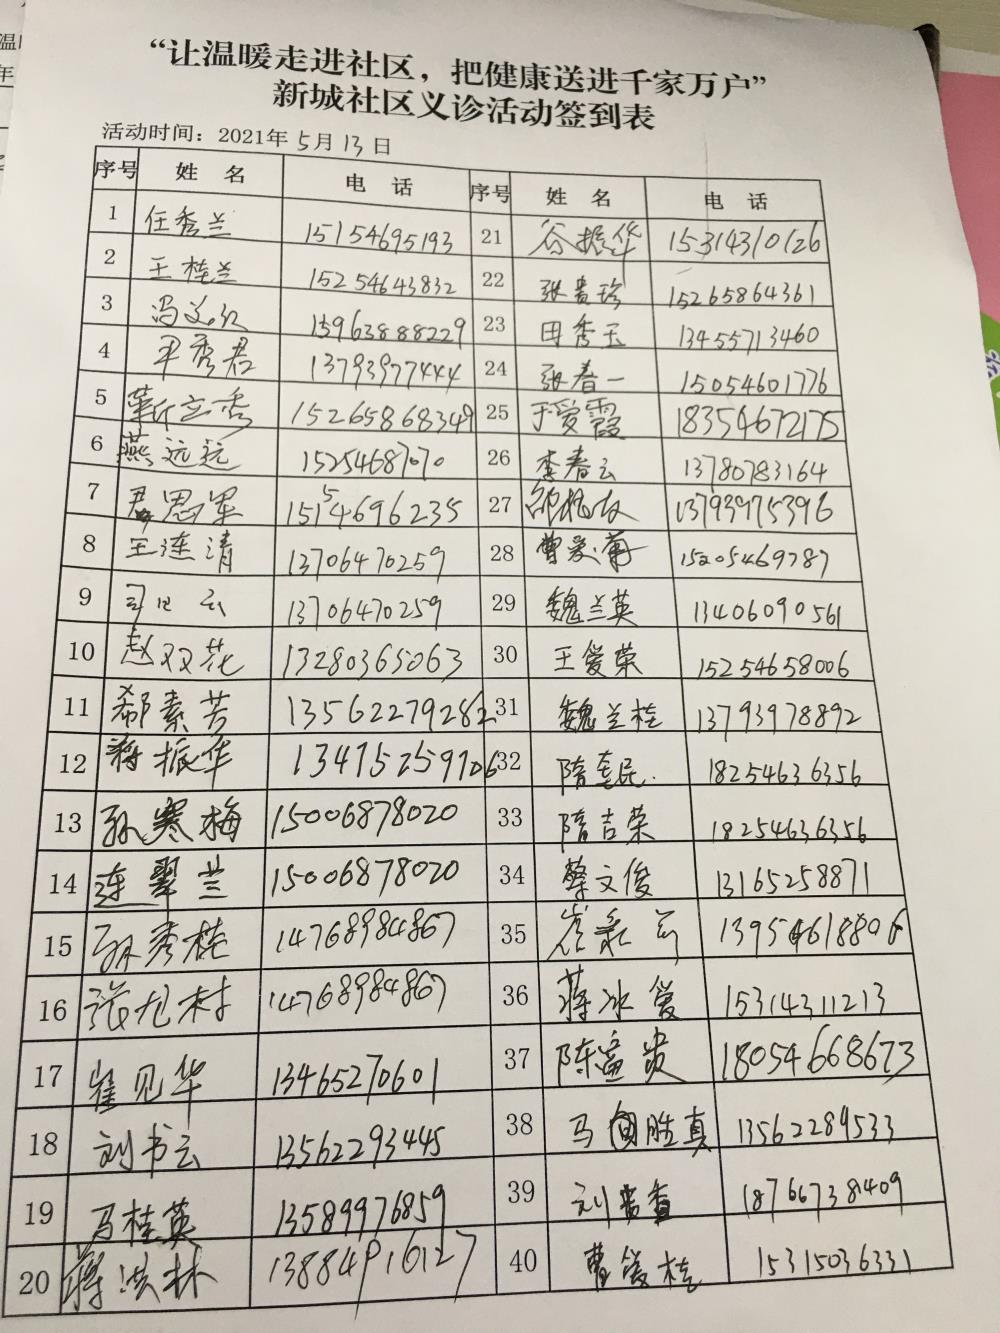 “让温暖走进社区，把健康送进千家万户”
新城社区义诊活动签到表
活动时间：2021年 5月 13日
序号 姓 名 电 话 序号 姓 名 电 话
1 任秀兰 15154695193 21 谷振华 15314310126
2 王桂兰 15254643832 22 张贵珍 15265864361
3 冯 15963888229 23 田秀玉 13455713460
4 秀君 13793977444 24 张春一 15054601776
5 靳立秀 15265868349 25 于爱霞 18354672175
6 燕远远 15254687070 26 李春云 13780783164
7 思军 15154696235 27 邵 13793975396
8 王连清 13706470259 28 曹爱菊 15205469787
9 司 云 13706470259 29 魏兰英 13406090561
10 赵双花 13280365063 30 王爱荣 15254658006
11 郝素芳 13562279282 31 魏兰桂 13793978892
12 蒋振华 13475259706 32 隋民 18254636356
13 孙寒梅 15006878020 33 隋吉荣 18254636356
14 连翠兰 15006878020 34 蔡文俊 13165258871
15 孙秀桂 14768984867 35 13954618806
16 张九村 14768984867 36 蒋冰爱 15314311213
17 崔见华 13465270601 37 陈贵 18054668673
18 刘书云 13562293445 38 马胜真 13562289533
19 马桂英 13589976859 39 刘 18766738409
20 蒋洪林 13884916127 40 曹俊桂 15315036331